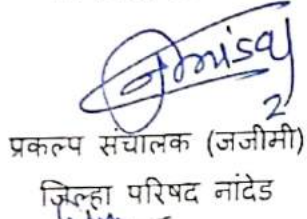 प्रकल्प संचालक (जजीमी)
जिल्हा परिषद नांदेड